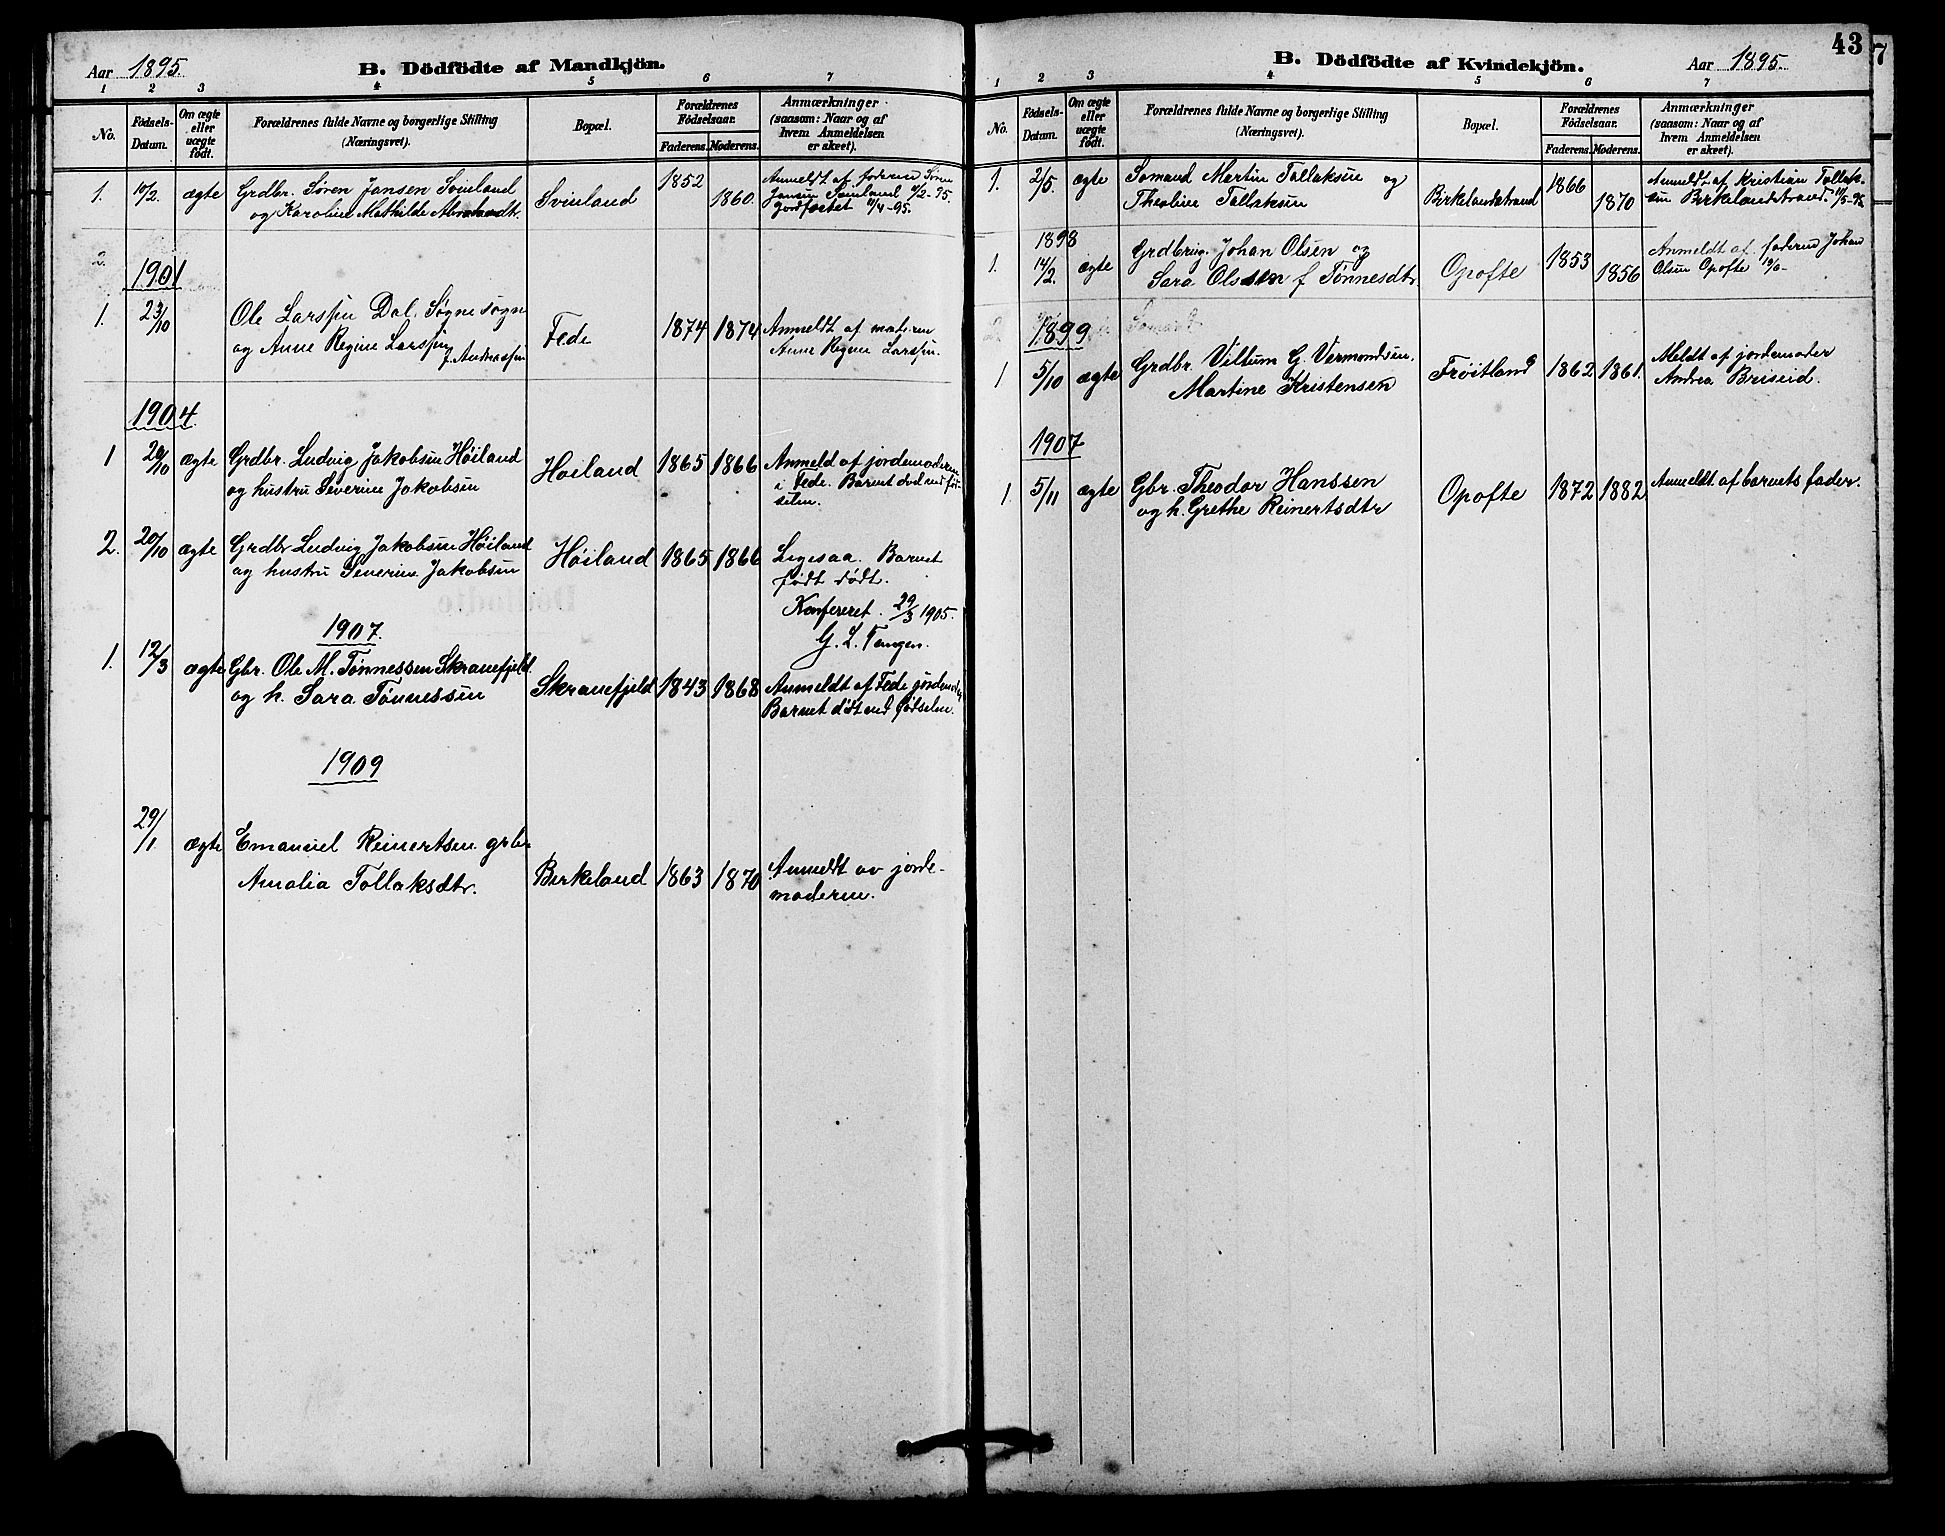 Aar 1895.
B. Dödfödte af Mandkjön.
1 2 3 4 5 6 7
No.
Födsels-
Datum.
Om ægte
eller
uægte
födt.
Forældrenes fulde Navne og borgerlige Stilling
(Næringsvei).
Bopæl.
Forældrenes
Födselsaar.
Faderens. Moderens.
Anmærkninger
(saasom: Naar og af
hvem Anmeldelsen
er skeet).
1. 10/2. ægte Grdbr. Søren Jansen Svinland
og Karoline Mathilde
Svinland 1852 1860.
Anmeldt af faderen Søren
Jansen Svinland
Jordfæstet 11/4-95.
2.
1901
1. 23/10 Ole Larssen Dal. Søgne sogn
og Anne Regine Larssen
f. Andreassen
Fede 1874 1874
Anmeldt af moderen
Anne Regine Larssen.
1904
1 20/10 ægte Grdbr. Ludvig Jakobsen Höiland
og hustru Severine Jakobsen
Höiland 1865 1866
Anmeld af jordemoderen
i Fede. Barnet död ved föd-
selen.
2. 20/10 ægte Grdbr Ludvig Jakobsen Höiland
og hustru Severine Jakobsen
Höiland 1865 1866
Ligesaa. Barnet
födt dödt.
Konfereret. 29/3 1905.
G. L. Tangen.
1907.
1. 12/3 ægte Gbr. Ole M. Tønnessen Skranefjeld
og h. Sara Tønnessen
Skranefjeld 1843 1868
Anmeldt af Fede jordemoder
Barnet dödt ved fødselen.
1909
29/1. ægte Emanuel Reinertsen grbr
Amalia Tollaksdtr.
Birkeland 1863 1870
Anmeldt av jorde-
moderen.
43
B. Dödfödte af Kvindekjön.
Aar 1895.
1 2 3 4 5 6 7
No.
Födsels-
Datum.
Om ægte
eller
uægte
födt.
Forældrenes fulde Navne og borgerlige Stilling
(Næringsvei).
Bopæl.
Forældrenes
Födselsaar.
Faderens. Moderens.
Anmærkninger
(saasom: Naar og af
hvem Anmeldelsen
er skeet).
1. 2/5. ægte Sømand Martin Tallaksen og
Theoline Tallaksen
Birkelandstrand 1866 1870
Anmeldt af Kristian Tallak-
sen Birkelandstrand.
1898
1. 14/2. ægte Grdbrug. Johan Olsen og
Sara Olsen f Tønnesdtr.
Opofte 1853 1856
Anmeldt af faderen Johan
Olsen Opofte
1899
1 5/10 ægte Grdbr. Viltum G. Vermondsen.
Martine Kristensen
Fröitland 1862 1861.
Meldt af jordemoder
Andrea Briseid.
1907
1. 5/11 ægte Gbr. Theodor Hanssen
og h. Grethe Reinertsdtr
Opofte 1872 1882
Anmeldt af barnets fader.
7